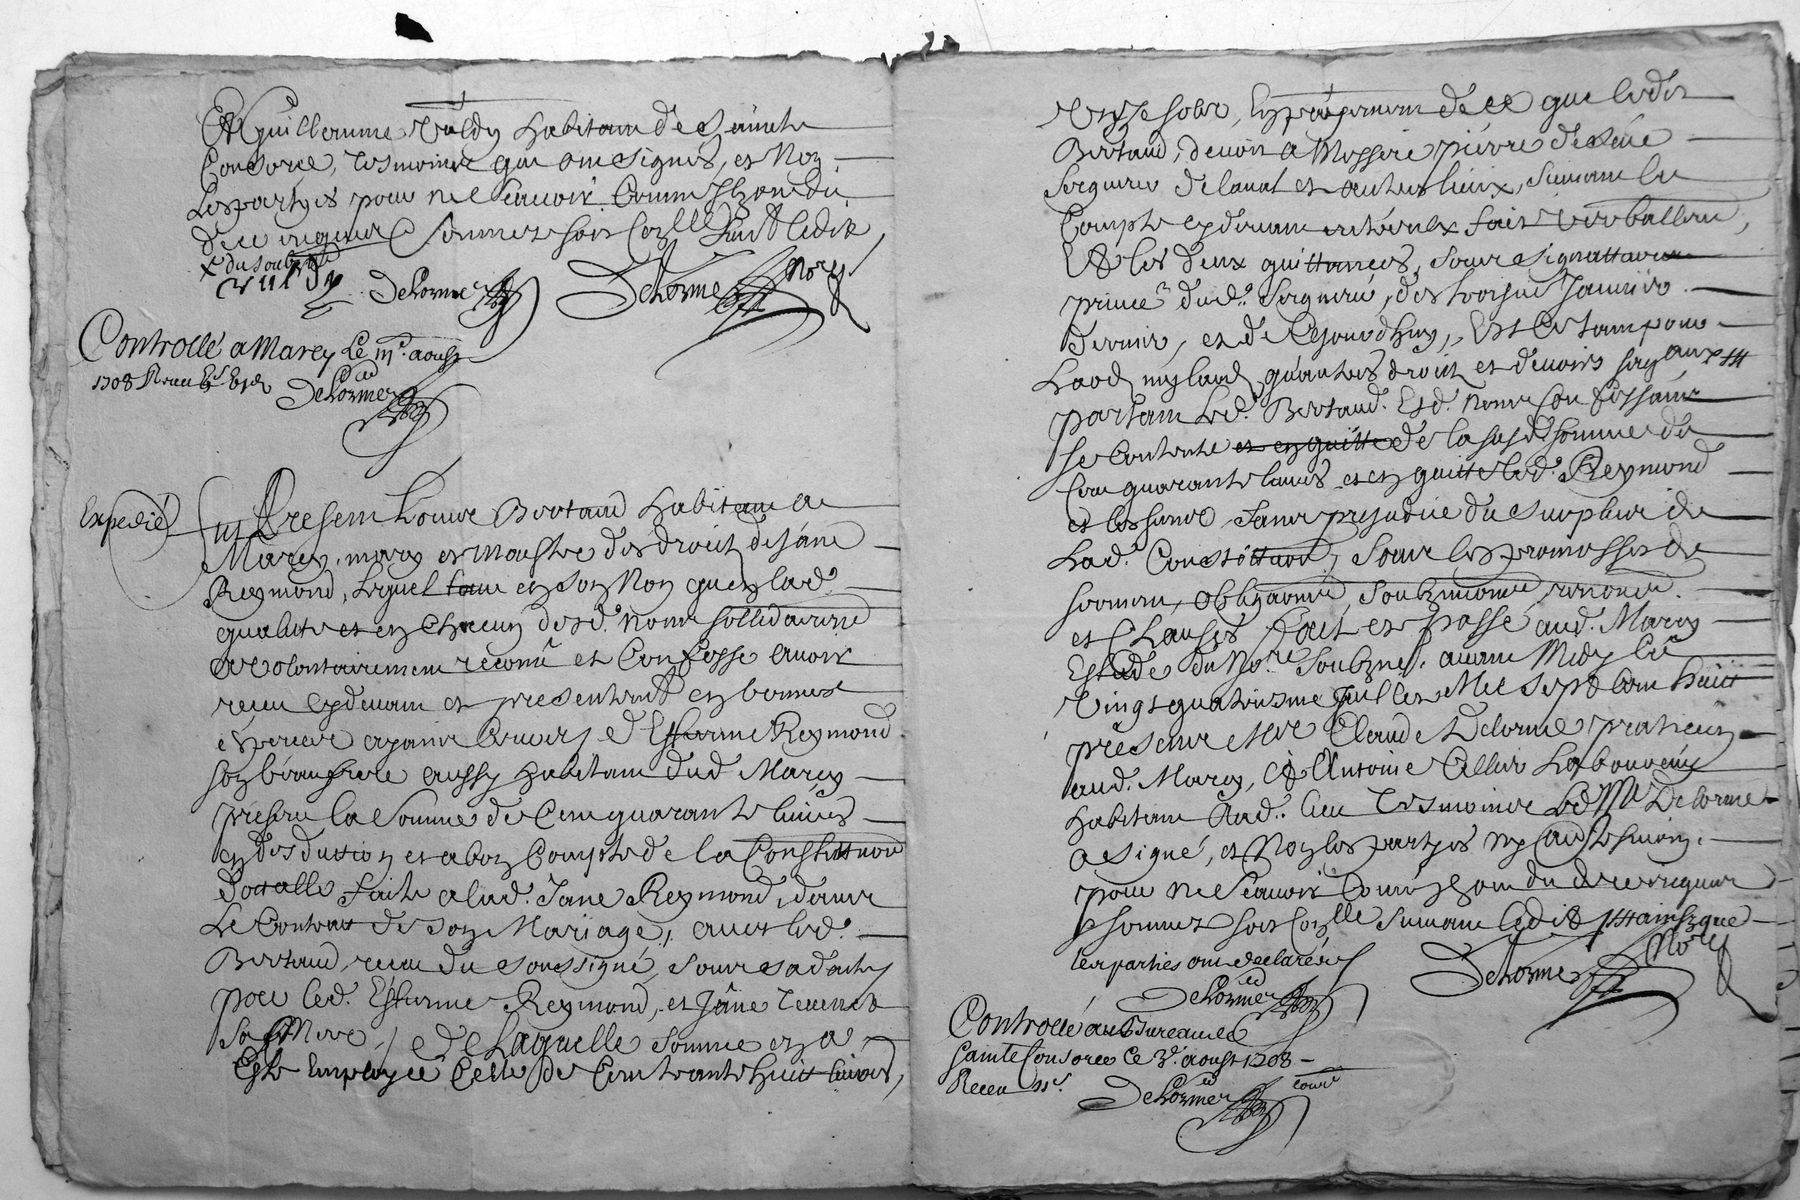 Et Guillerme Valdy habitant de Sainte
Consorce, tesmoins qui ont signés, et non
les partyes pour ne sçavoir comm' ils ont dit
de ce enquis et sommez soit Con.lle suivt ledit
x du soubzné
Delorme Delorme No.re
Controllé a Marcy Le iij.e aoust
1708 Receu
Delorme
Expedié
Fut Present Louis Bertaud habitant a
Marcy, mary et maistre des droits de Jane
Reymond, lequel tant en son non qu'en lad.
qualité et en chacun desd. noms sollidairem.
a volontairement reconu et confesse avoir
receu cydevant et presentemt en bonnes
espece et a paine d'Estienne Reymond
son beaufrere aussy habitant dud. Marcy
present la somme de Cent quarante livres
en desduction et a bon compte de la Constitution
dottalle faite a lad. Jane Reymond, dans
Le Contrat de son Mariage, avec led.
Bertaud, receu du soussigné, sous sa datte
par led. Estienne Reymond, et Jane
Sa Mere, de Laquelle somme en a
Esté Employée Celle de Cent trante huit livres,
Vingt solz, en payement de ce que ledit
Bertaud, devoit a Messire pierre de Seve
Seigneur de laval et autres lieux, suivant le
Compte cydevant entr'eux fait verballem.,
Et les deux quittances, sous signattures
privée dud. Seigneur, des troisme Janvier
dernier, et de Cejourd'huy, Est Ce tant pour
Laod, mylaod, qu'autres droits et devoirs seig.aux
partant led. Bertaud. Esd. noms Confessant
se contente et en quitte de la susd. somme de
Cent quarante livres et en quitte led. Reymond
et les siens, sans prejudice du surplus de
Lad. Constitution, sous les promesses de
serment, obligations, soubzmissions, renonces.
et Clauses fait et passé aud. Marcy
Estude du No.re soubzné, avant Midy le
Vingt quatriesme Juillet Mil sept Cent huit
presence de Claude Delorme praticien
aud. Marcy, Et Antoine Laboureur
habitant Aud. lieu tesmoins led. M.e Delorme
a signé, et Non les partyes ny l'autre tesmoin
pour ne sçavoir
sommez soit Con.lle suivant ledit ainsy que
les parties ont declarées
Delorme Delorme No.re
Controllé au Bureau de
Sainte Consorce Ce 3.e aoust 1708
Receu 11.s
Delorme